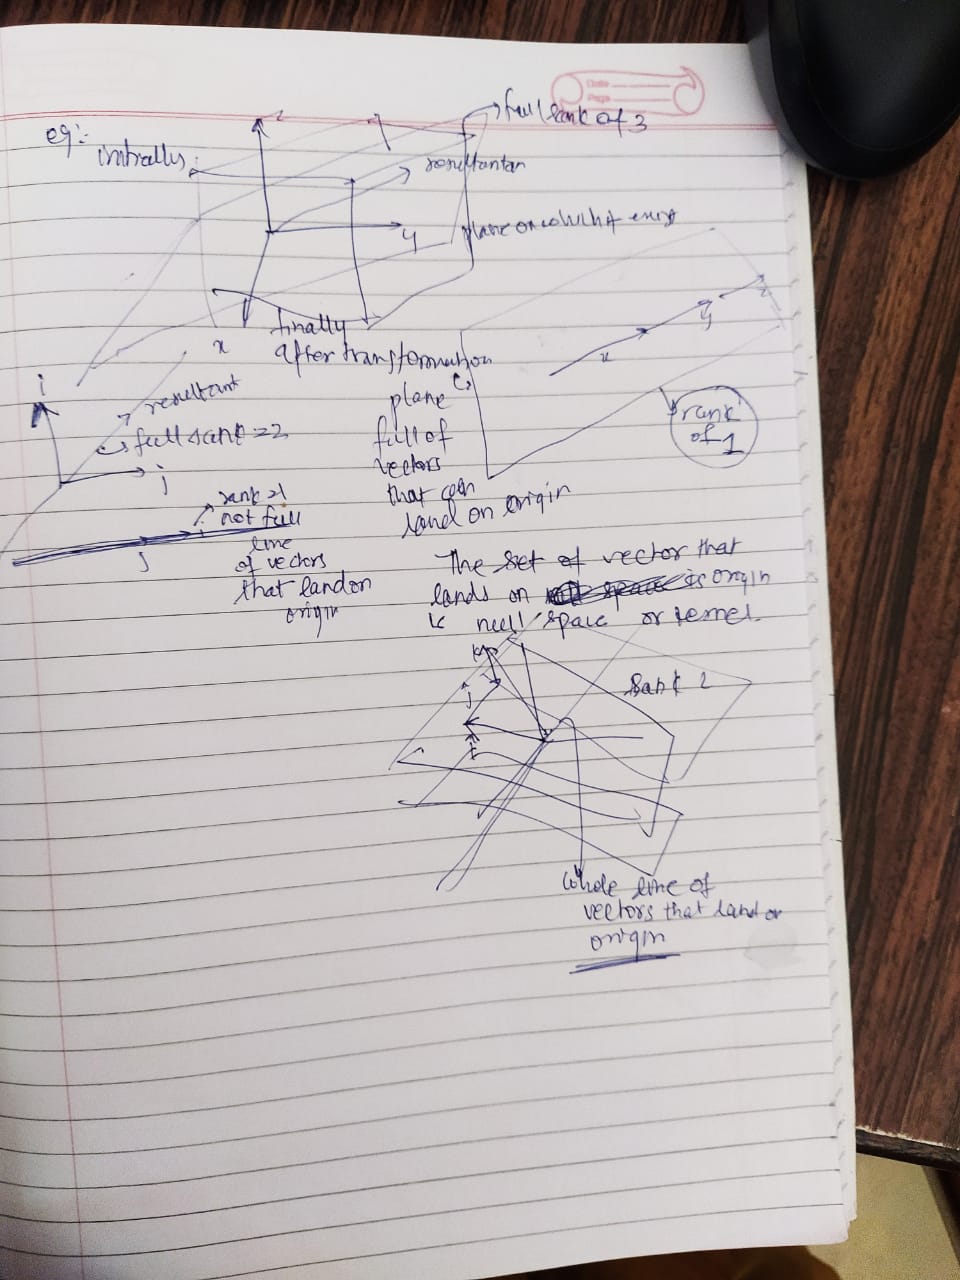 Date
Page
eg:-
initially
z
full rank of 3
resultantan
y
plane on which it exist
x
finally
after transformation
plane
full of
vectors
that can
land on origin
x
y
z
rank
of 1
i
resultant
full rank = 2
j
rank 1
not full
i
j
line
of vectors
that land on
origin
The set of vector that
lands on space is origin
is null space or kernel.
k
j
i
Rank 2
whole line of
vectors that land on
origin